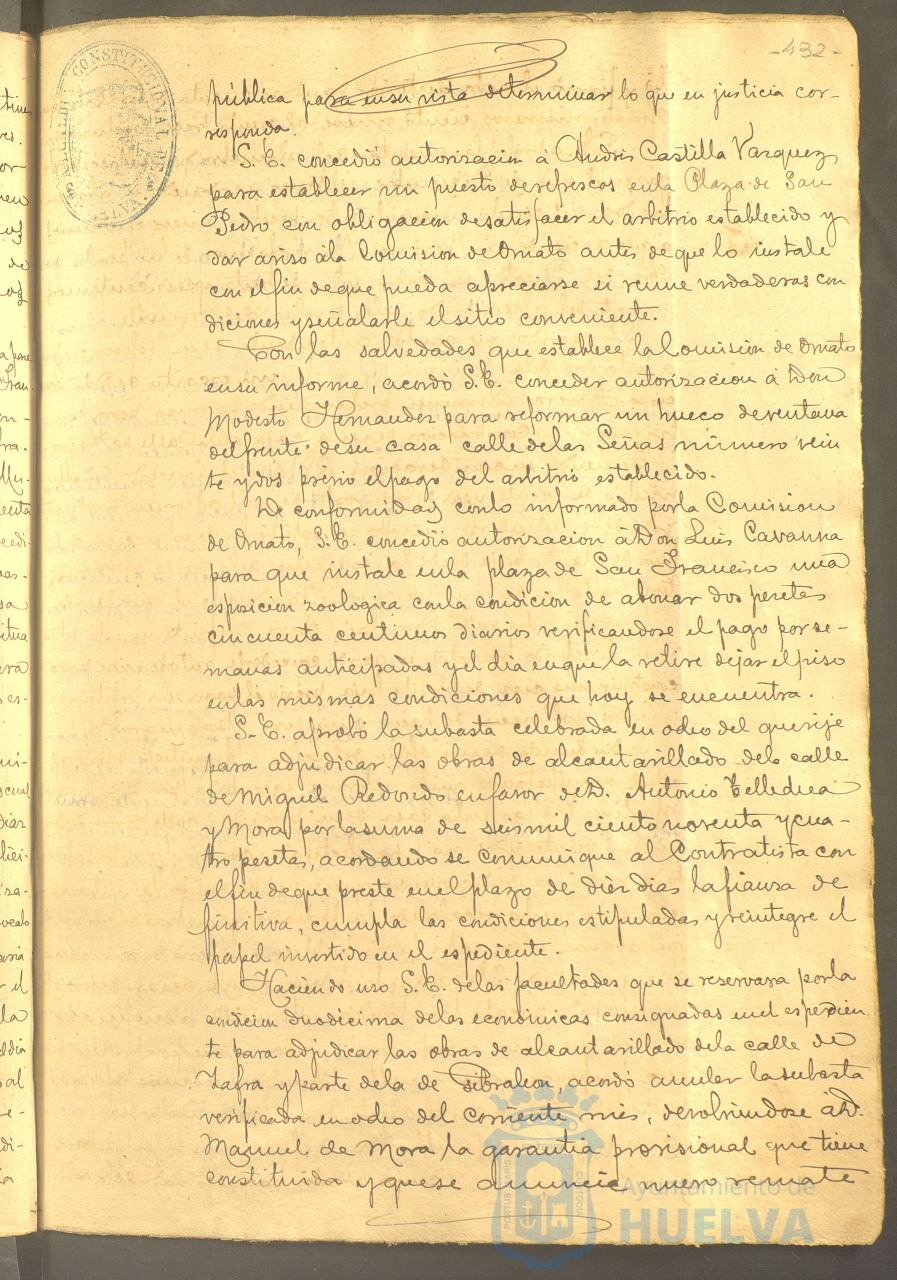 -432-
pública para en su vista determinar lo que en justicia cor-
responda.
S. E. concedió autorizacion á Andrés Castilla Vazquez
para establecer un puesto de refrescos en la Plaza de San
Pedro con obligacion de satisfacer el arbitrio establecido y
dar aviso á la Comision de Ornato antes de que lo instale
con el fin de que pueda apreciarse si reune verdaderas con
diciones y señalarle el sitio conveniente.
Con las salvedades que establece la Comisión de Ornato
en su informe, acordó S. E. conceder autorizacion á Don
Modesto Hernandez para reformar un hueco de ventana
del frente de su casa calle de las Señas número vein
te y dos prévio el pago del arbitrio establecido.
De conformidad con lo informado por la Comision
de Ornato, S. E. concedió autorizacion á Don Luis Cavanna
para que instale en la plaza de San Francisco una
esposicion zoologica con la condicion de abonar dos pesetas
cincuenta centimos diarios verificandose el pago por se-
manas anticipadas y el dia en que la retire dejar el piso
en las mismas condiciones que hoy se encuentra.
S. E. aprobó la subasta celebrada en ocho del que rije
para adjudicar las obras de alcantarillado de la calle
de Miguel Redondo en favor de D. Antonio
y Mora, por la suma de seis mil ciento noventa y cua-
tro pesetas, acordando se comunique al Contratista con
el fin de que preste en el plazo de diez dias la fianza de
finitiva, cumpla las condiciones estipuladas y reintegre el
papel invertido en el espediente.
Haciendo uso S. E. de las facultades que se reservara por la
condicion duodécima de las económicas consignadas en el espedien
te para adjudicar las obras de alcantarillado de la calle de
Zafra y parte de la de Gibraleon, acordó anular la subasta
verificada en ocho del corriente mes, devolviendose á D.
Manuel de Mora la garantia provisional que tiene
constituida y que se anuncie nuevo remate
Ayuntamiento de
HUELVA